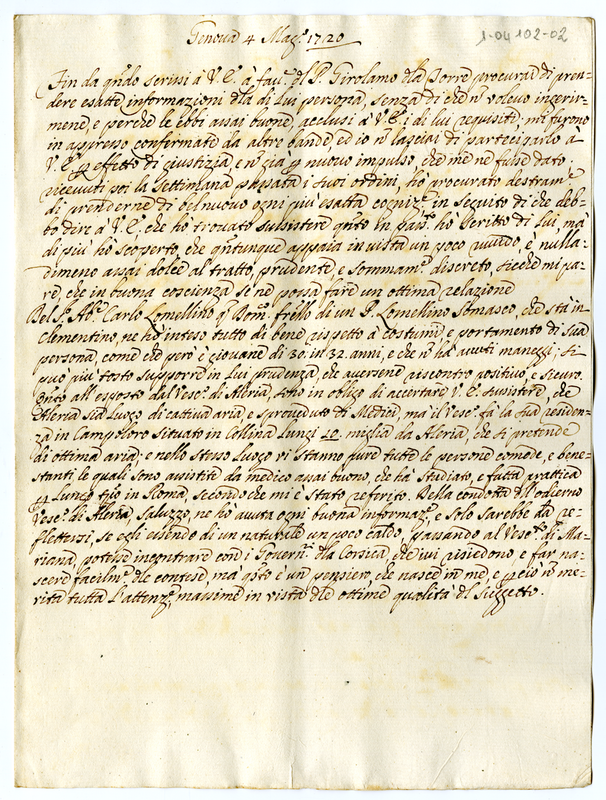 Genova 4 Mag.° 1720
1-04 102-02
Fin da qñdo scrissi à V. E. à fav.e del P. Girolamo dla Torre procurai di pren=
dere esatte informazioni dla di lui persona, senza di che nõ volevo ingerir=
mene, e perche le ebbi assai buone, acclusi à V. E. i di lui requisiti; mi furono
in appresso confermate da altre bande, ed io nõ lasciai di parteciparlo à
V. E. p effetto di giustizia, e nõ già p nuovo impulso, che me ne fusse dato.
ricevuti poi la settimana passata i suoi ordini, hò procurato destram.e
di prenderne di bel nuovo ogni più esatta cogniz.e in seguito di che deb=
bo dire à V. E. che hò trovato sussistere qñto in pass.° hò scritto di lui, mà
di più hò scoperto, che qñtunque appaia in vista un poco ruvido, è nulla=
dimeno assai dolce al tratto, prudente, e sommam.e discreto, siche mi pa=
re, che in buona coscienza se ne possa fare un ottima relazione
Del S.r Ab.e Carlo Lomellino q Dom. frello di un P. Lomellino Somasco, che stà in
Clementino, ne hò inteso tutto di bene rispetto à costumi, e portamento di sua
persona, come che però è giovane di 30. in 32. anni, e che nõ hà avuti maneggi; si
può più tosto supporre in lui prudenza, che aversene riscontro positivo, e sicuro.
Qñto all'esposto dal Vesc.° di Aleria, sono in obligo di accertare V. E. sussistere, che
Aleria sia luogo di cattiva aria, e sproveduto di Medici, mà il Vesc.° fà la sua residen=
za in Campoloro situato in collina lungi 10. miglia da Aleria, che si pretende
di ottima aria; e nello stesso luogo vi stanno pure tutte le persone comode, e bene=
stanti le quali sono assistite da medico assai buono, che hà studiato, e fatta prattica
p lungo tpo in Roma, secondo che mi è stato referito. Della condotta dell'odierno
Vesc.° di Aleria, Saluzzo, ne hò avuta ogni buona informaz.e, e solo sarebbe da re=
flettersi, se egli essendo di un naturale un poco caldo, passando al Vesc.° di Ma=
riana, potesse incontrare con i Govern.i dla Corsica, che ivi risiedono, e far na=
scere facilm.e dle contese, mà qsto è un pensiero, che nasce in me, e p ciò nõ me=
rita tutta l'attenz.e, massime in vista dle ottime qualità del suggetto.